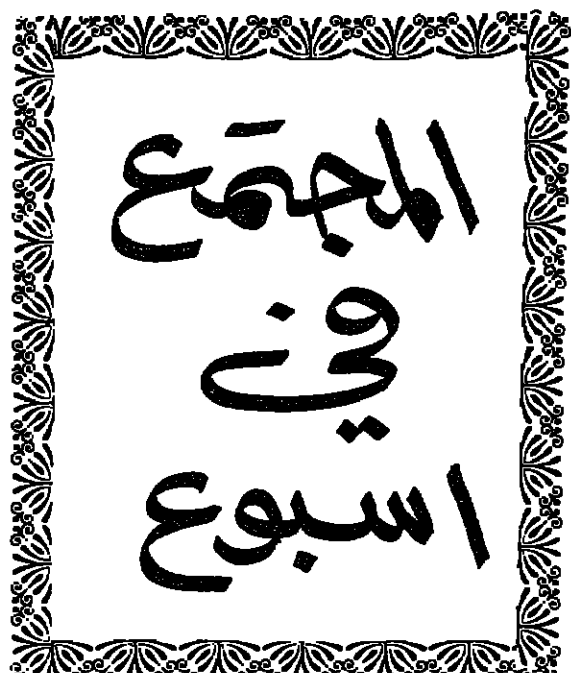 المجتمع
في
اسبوع